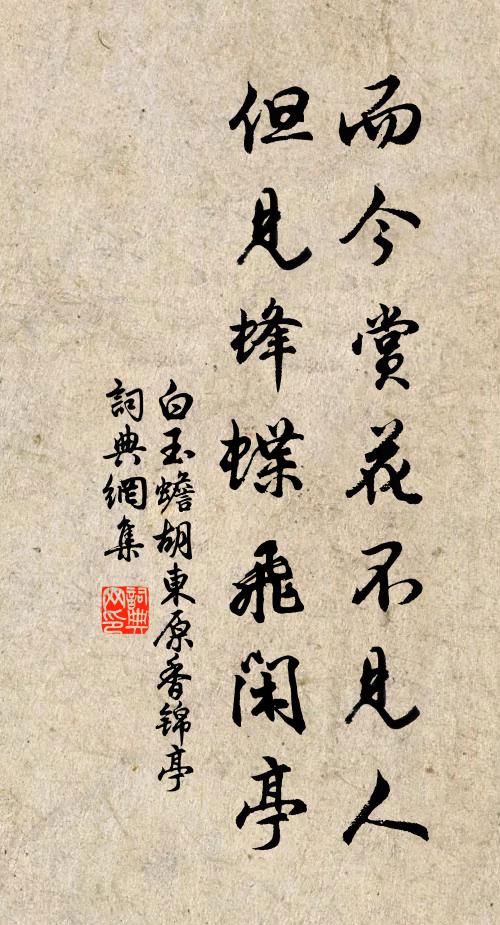 而今赏花不見人
但見蜂蝶飛閑亭
白玉蟾胡東原香锦亭
詞典網集
詞典网印